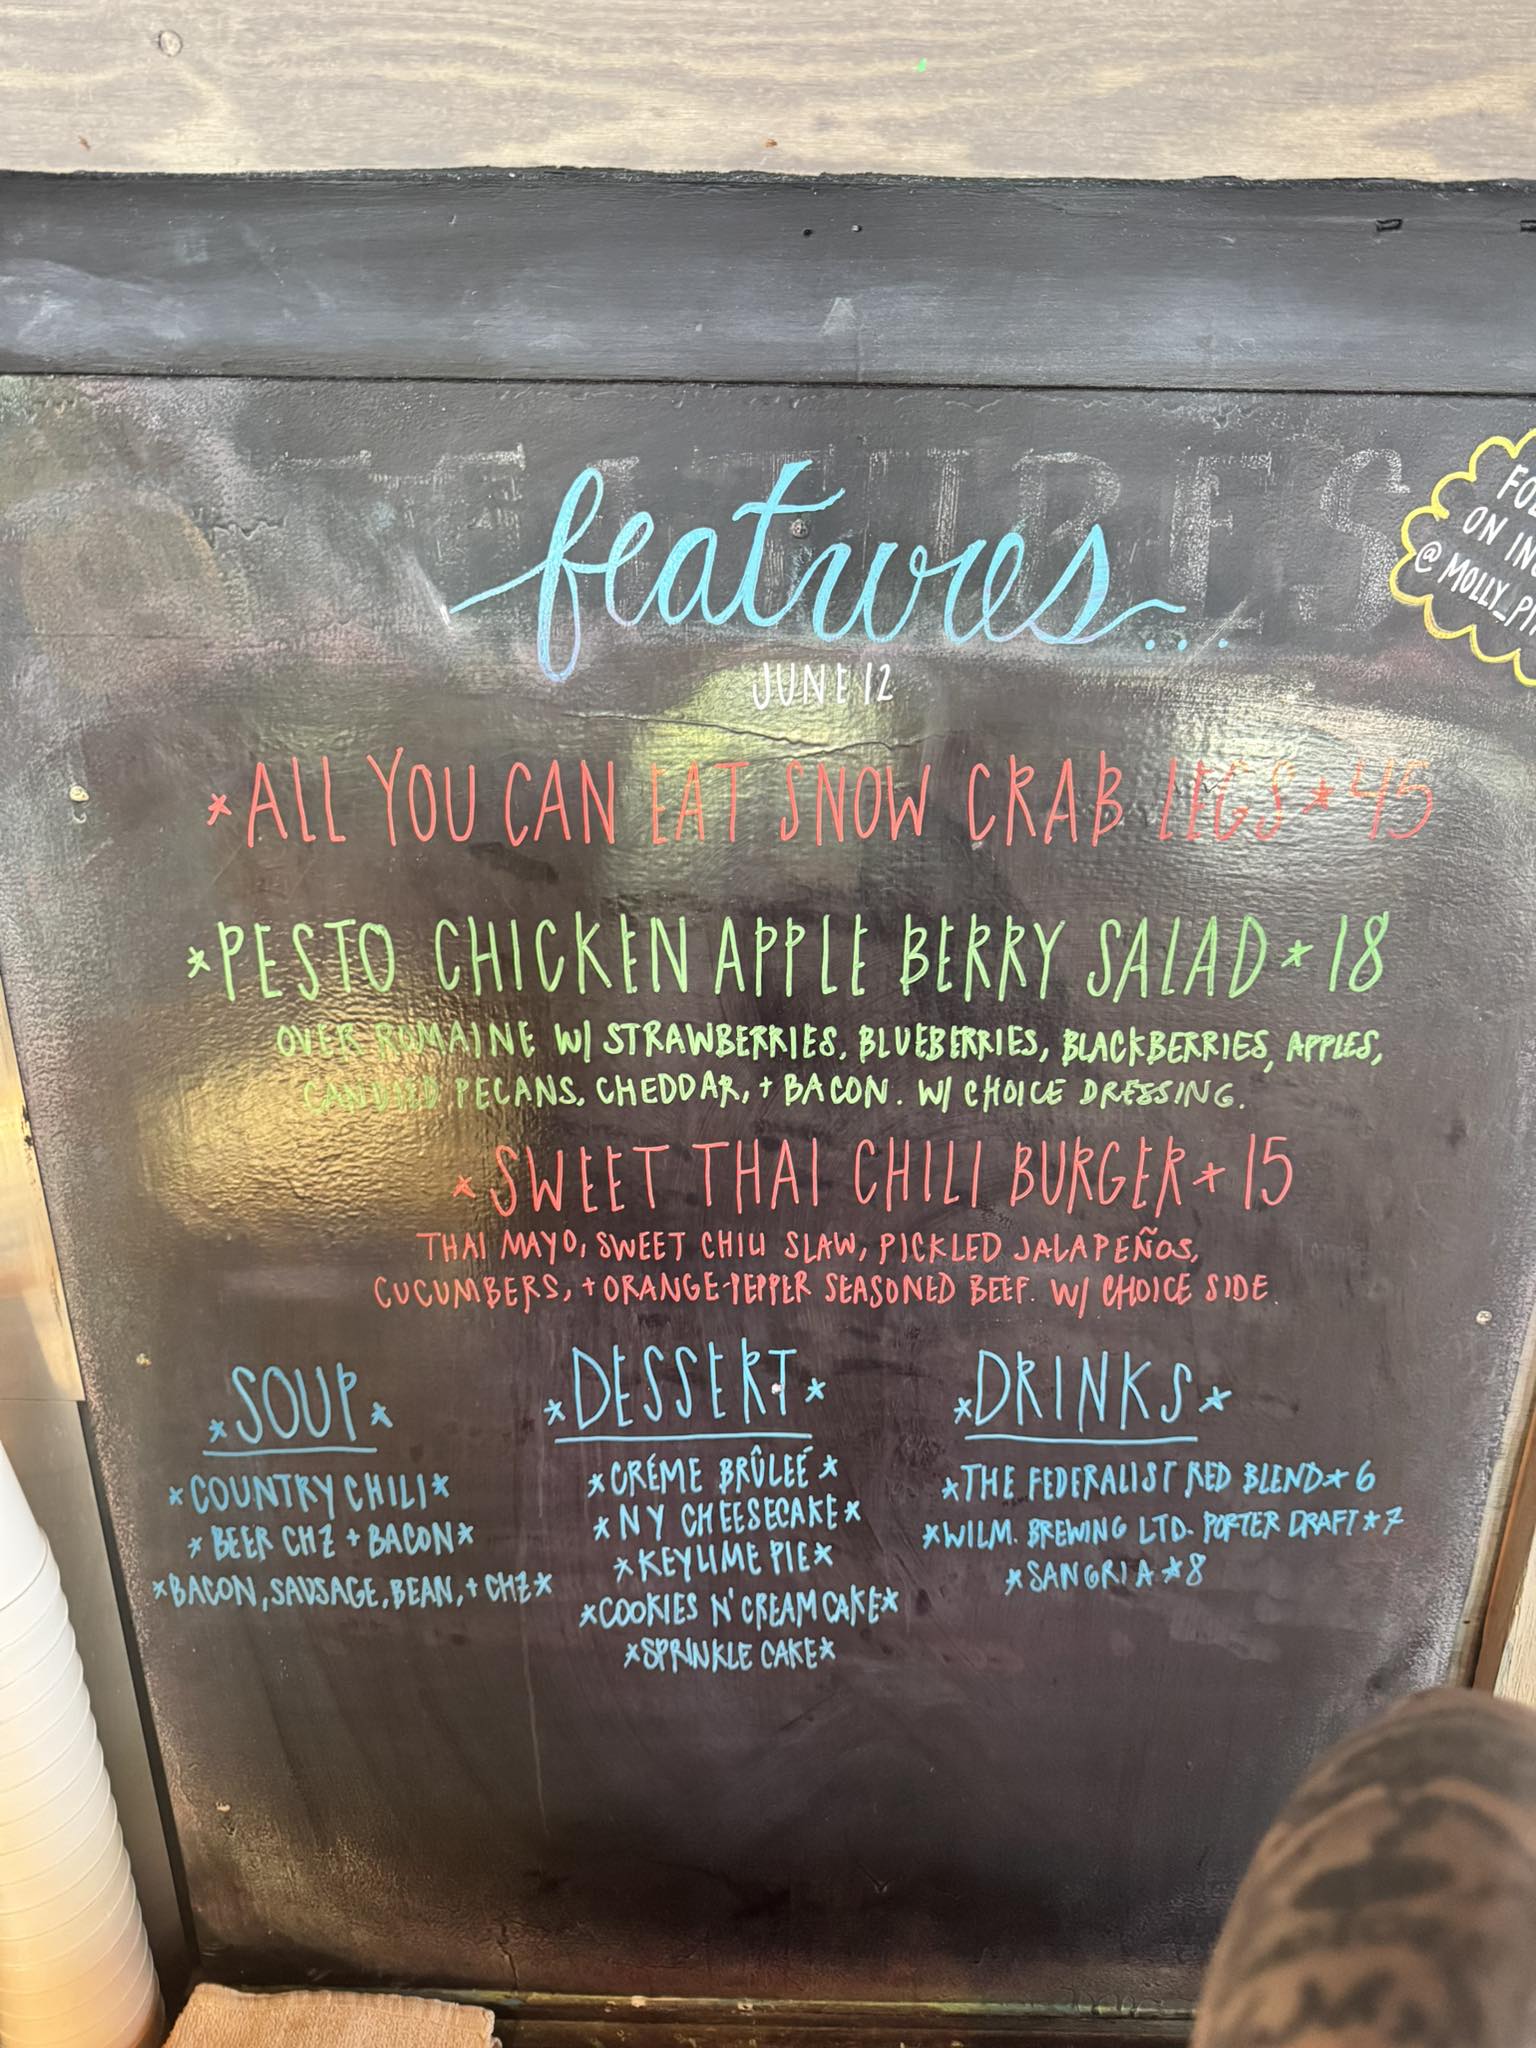 features...
JUNE 12
ON
@MOLLY_
*ALL YOU CAN EAT SNOW CRAB LEGS * 45
*PESTO CHICKEN APPLE BERRY SALAD * 18
OVER ROMAINE W/ STRAWBERRIES, BLUEBERRIES, BLACKBERRIES, APPLES,
CANDIED PECANS, CHEDDAR, + BACON. W/ CHOICE DRESSING.
*SWEET THAI CHILI BURGER * 15
THAI MAYO, SWEET CHILI SLAW, PICKLED JALAPEÑOS,
CUCUMBERS, + ORANGE-PEPPER SEASONED BEEF. W/ CHOICE SIDE
*SOUP*
*COUNTRY CHILI*
*BEER CHZ + BACON*
*BACON, SAUSAGE, BEAN, + CHZ*
*DESSERT*
*CRÉME BRÛLEÉ*
*NY CHEESECAKE*
*KEYLIME PIE*
*COOKIES N' CREAM CAKE*
*SPRINKLE CAKE*
*DRINKS*
*THE FEDERALIST RED BLEND * 6
*WILM. BREWING LTD. PORTER DRAFT * 7
*SANGRIA * 8